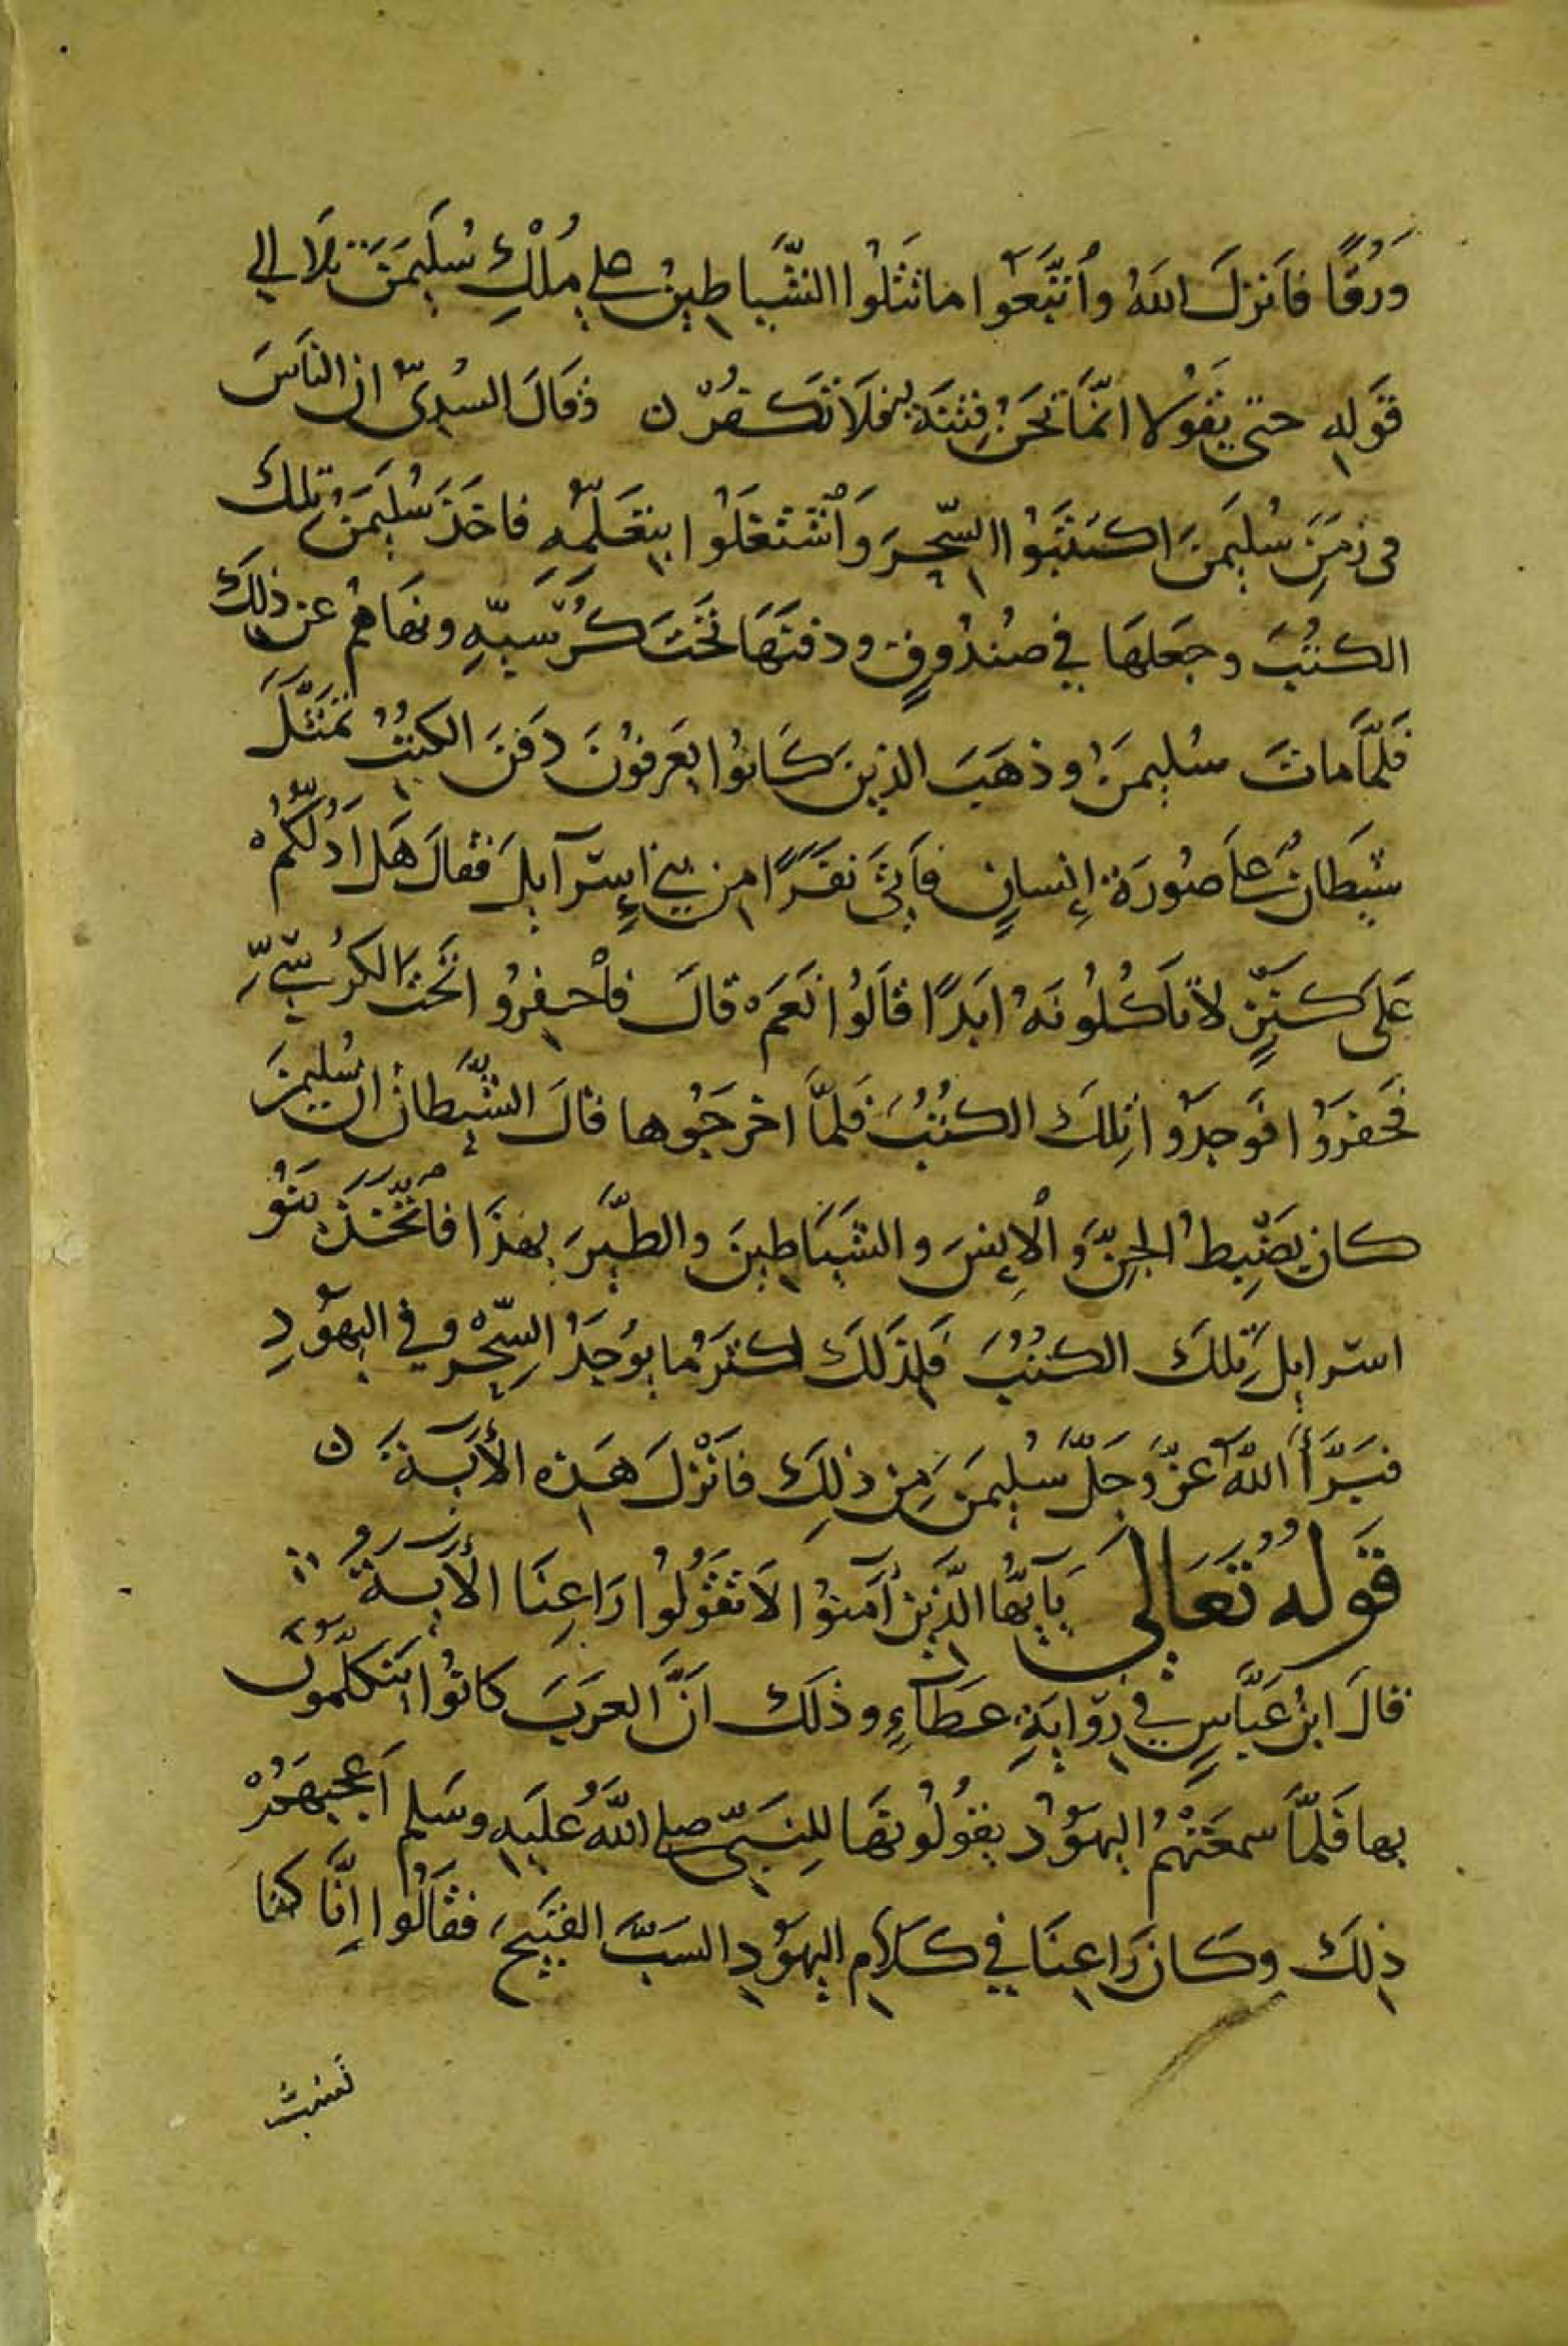 وَرُقًا فَأنزلَ اللهُ وٱتَّبَعُوا ما تَتْلُوا الشَّياطِينُ على مُلْكِ سُلَيمَنَ تلَا الى
قَولِهِ حتى يَقُولا انّمَا نَحنُ فِتنَة فَلَا تَكفُرْ ن وقالَ السُدِىّ ان الناسَ
فى زمَنِ سُلَيمَنَ اكتتَبُوا السِّحرَ وَٱشْتَغَلُوا بِتَعَلُّمِهِ فاخَذَ سُلَيمَنُ تِلكَ
الكتُبَ وجَعَلهَا في صُندُوقٍ ودفنَهَا تَحْتَ كُرْسِيّهِ ونهَاهُمْ عن ذلِكَ
فَلمَّا ماتَ سُلَيمَنُ وذهَبَ الذينَ كَانُوا يَعرفُونَ دَفنَ الكتُبِ تَمَثَّلَ
شَيطَانٌ علَى صُورَة إنسانٍ فأتَى نَفَرًا من بني إسرآيلَ فقالَ هَل اَدُلُّكُمْ
عَلى كَنزٍ لا تأكُلُونَهُ ابَدًا قالُوا نَعَمْ قالَ فأحفِرُوا تَحْتَ الكُرْسِيِّ
فحَفَرُوا فَوَجدُوا تِلكَ الكتُبَ فَلمَّا اخرجُوها قالَ الشَّيطانُ ان سُليمنَ
كان يَضْبِطُ الجنَّ وَالْإنسَ والشَيَاطِينَ والطَّيرَ بهذَا فاتّخَذَ بَنُو
اسرايلَ تِلكَ الكتُبَ فَلِذَلكَ اكثرُ ما يُوجَدُ السِّحْرُ في اليَهُودِ
فبَرَّأَ اللهُ عزّ وَجَلَّ سُلَيمَنَ مِن ذلِكَ فَانْزلَ هَذه الأيَةَ ن
قَولُهُ تَعَالى يَآيُّهَا الَّذينَ آمنُوا لَا تقُولُوا رَاعِنَا الأيةَ
قالَ ابنُ عَبَّاسٍ في رِوَايَةِ عَطَآءٍ وذلكَ انَّ العَرَبَ كانُوا يَتكلّمُونَ
بها فلَمَّا سَمعَتْهُمُ اليهُودُ يقُولُونهَا للنَبيِّ صلى اللهُ عليه وسَلم اَعجبَهمُ
ذلِكَ وكَانَ رَاعِنَا في كَلَامِ اليهُودِ السَبَّ القبيحَ فقالُوا إنَّا كنا